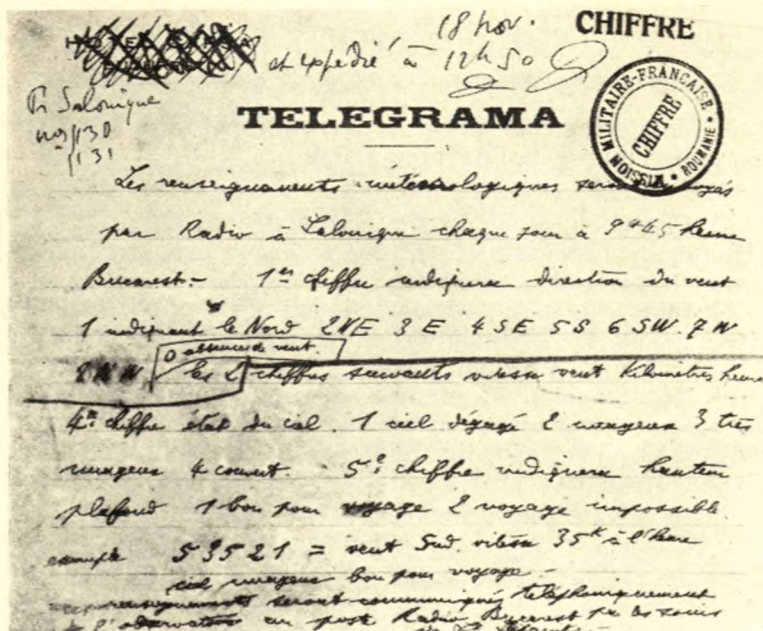 18 nov.
CHIFFRE
et expédié à 12h50
Pr Salonique
nos 130
131
TELEGRAMA
MISSION MILITAIRE-FRANÇAISE • ROUMANIE •
CHIFFRE
Les renseignements météorologiques
par Radio à Salonique chaque jour à 9h45 heure
Bucarest.- 1er chiffre indiquera direction du vent
1 indiquant le Nord 2 NE 3 E 4 SE 5 S 6 SW. 7 W
0 absence de vent.
8 NW les 2 chiffres suivants vitesse vent Kilomètres heure
4e chiffre état du ciel. 1 ciel dégagé 2 nuageux 3 très
nuageux 4 couvert. 5e chiffre indiquera hauteur
plafond 1 bon pour voyage 2 voyage impossible.
exemple 53521 = vent Sud. vitesse 35k à l'heure
ciel nuageux bon pour voyage.
renseignements seront communiqués téléphoniquement
au poste Radio Bucarest